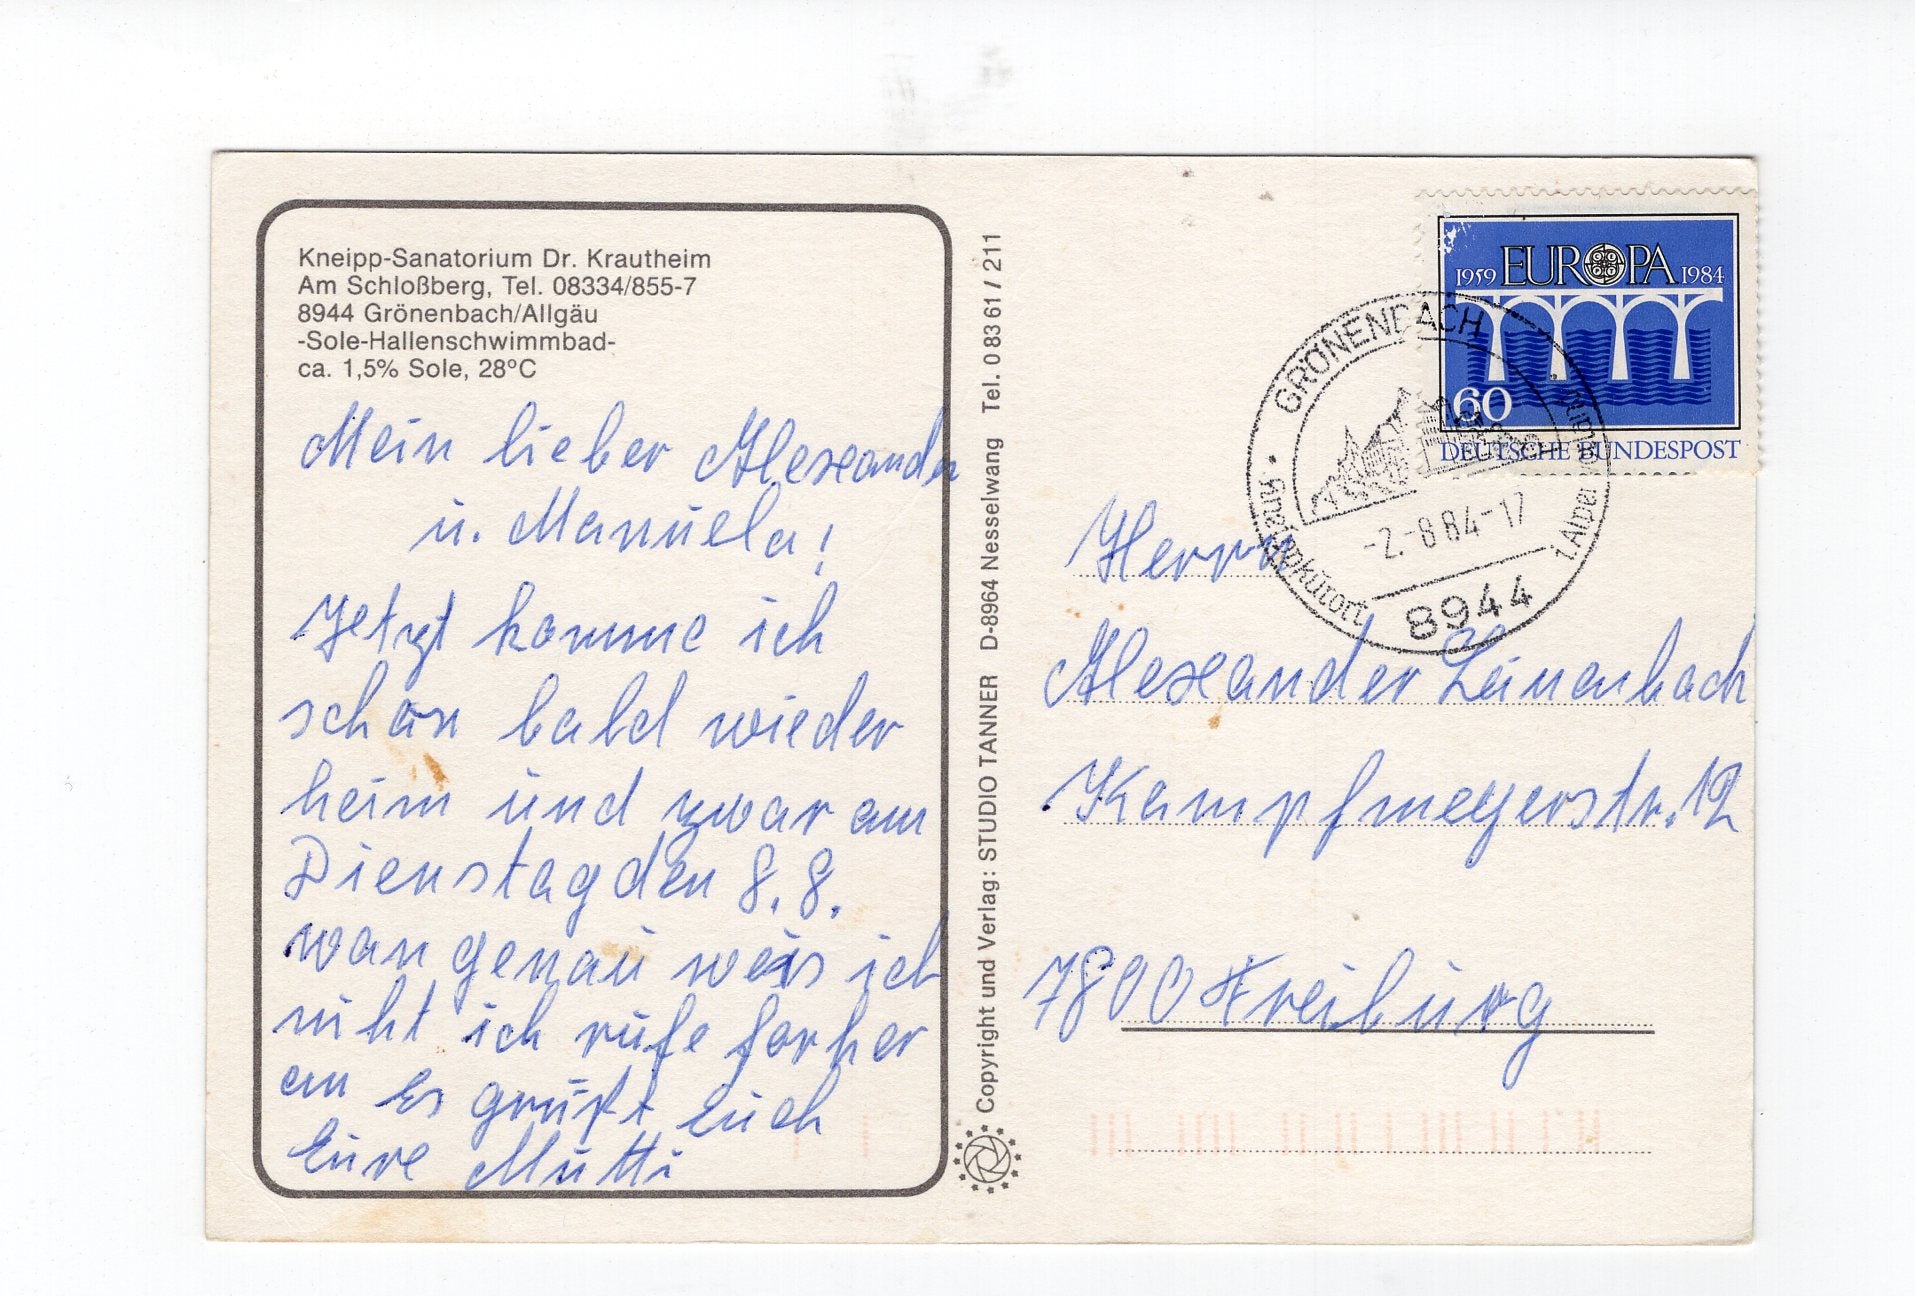 Kneipp-Sanatorium Dr. Krautheim
Am Schloßberg, Tel. 08334/855-7
8944 Grönenbach/Allgäu
-Sole-Hallenschwimmbad-
ca. 1,5% Sole, 28°C
Mein lieber Alexander
u. Manuela!
Jetzt komme ich
schon bald wieder
heim und zwar am
Dienstag den 8.8.
wan genau weis ich
niht ich rufe forher
an Es grüßt Euch
Eure Mutti
Copyright und Verlag: STUDIO TANNER D-8964 Nesselwang Tel. 0 83 61 / 211
1959 EUROPA 1984
60
DEUTSCHE BUNDESPOST
GRÖNENBACH
Kneippkurort
-2.-8 84-17
8944
Herrn
Alexander Leinenbach
Kampfmeyerstr. 12
7800 Freiburg